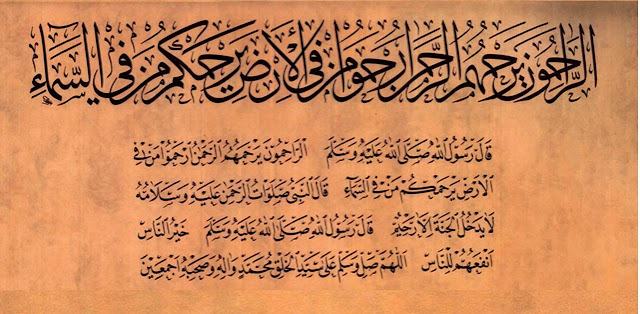 الراحمون يرحمهم الرحمن ارحموا من في الأرض يرحمكم من في السماء
قال رسول الله صلى الله عليه وسلم الراحمون يرحمهم الرحمن ارحموا من في
الأرض يرحمكم من في السماء قال النبي صلوات الرحمن عليه وسلامه
لا يدخل الجنة إلا رحيم قال رسول الله صلى الله عليه وسلم خير الناس
أنفعهم للناس اللهم صل وسلم على سيد الخلق محمد وآله وصحبه أجمعين